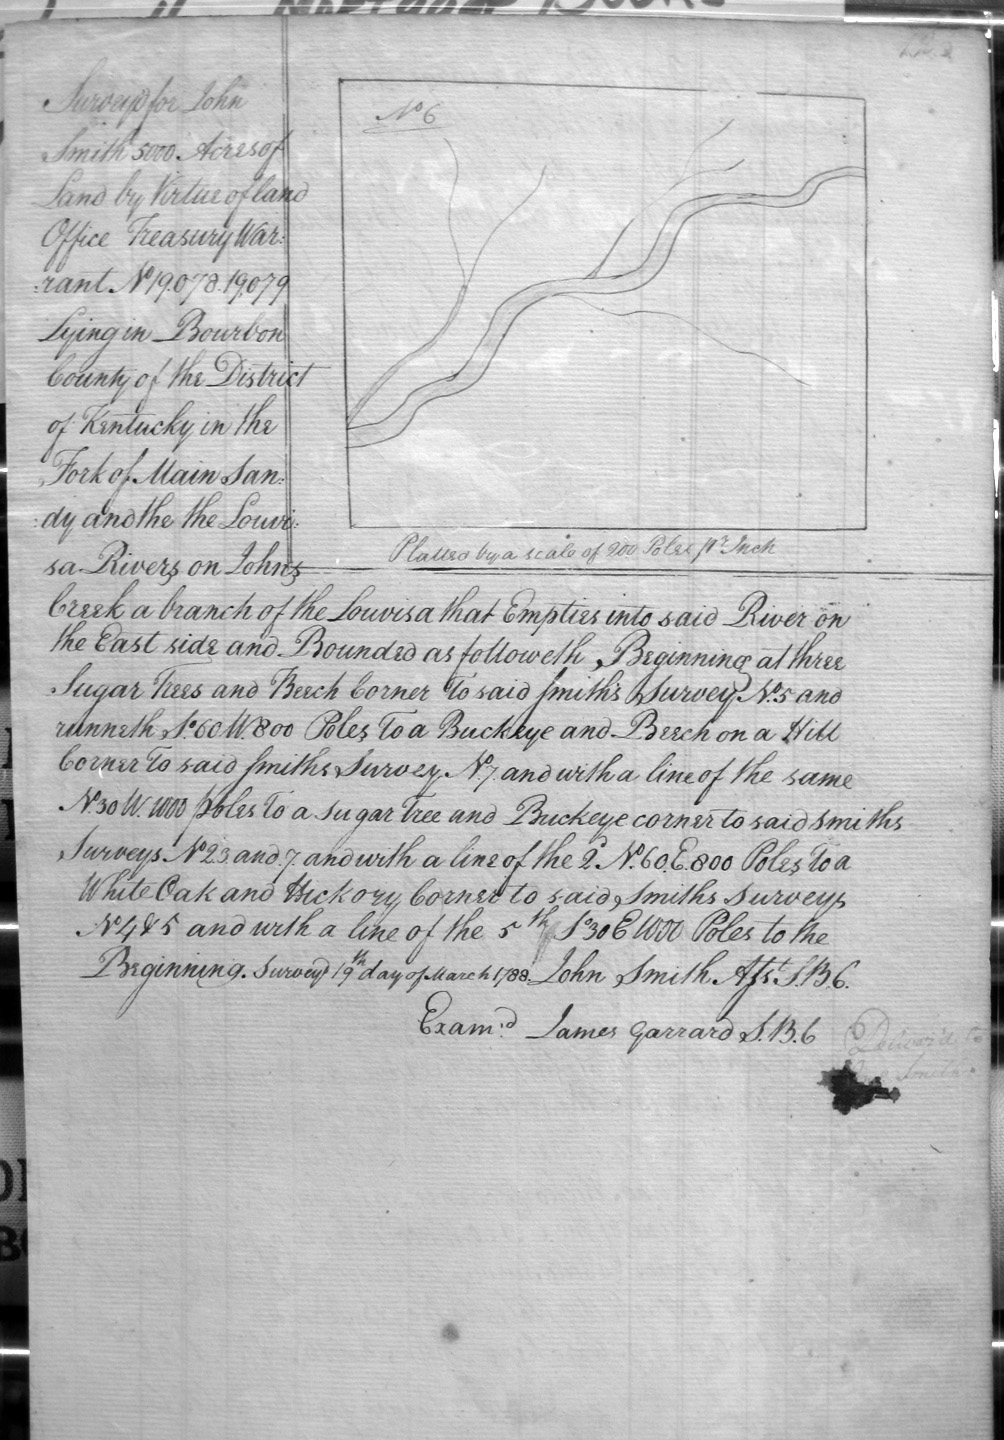 Mortgage Books
Survey'd for John
Smith 5000 Acres of
Land by Virtue of land
Office Treasury War:
:rant No 19.078.19,079
Lying in Bourbon
County of the District
of Kentucky in the
Fork of Main San:
:dy and the the Louvi:
sa Rivers on Johns
No 6
Platted by a scale of 200 Poles pr Inch
Creek a branch of the Louvisa that Empties into said River on
the East side and Bounded as followeth, Beginning at three
Sugar Trees and Beech Corner To said Smith's Survey No. 5 and
runneth So. 60 W. 800 Poles To a Buckeye and Beech on a Hill
Corner To said Smiths Survey No. 7. and with a line of the same
No 30 W. 1000 poles To a Sugar Tree and Buckeye corner to said Smiths
Surveys No 2 3. and 7. and with a line of the 2d No. 60. E. 800 Poles To a
White Oak and Hickory Corner to said Smiths Surveys
No 4 & 5 and with a line of the 5th So 30 E 1000 Poles to the
Beginning. Survey'd 19th day of March 1788. John Smith Asst. S.B.C.
Exam:d James Garrard S.B.C
Deliver'd to
Smith